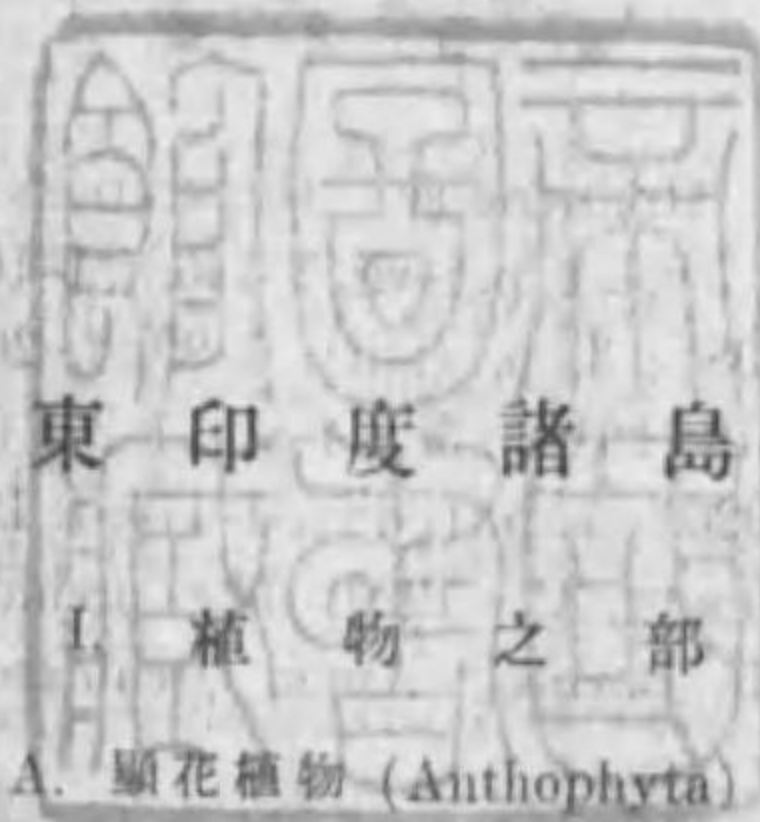 東印度諸島
I. 植物之部
A. 顯花植物 (Anthophyta)